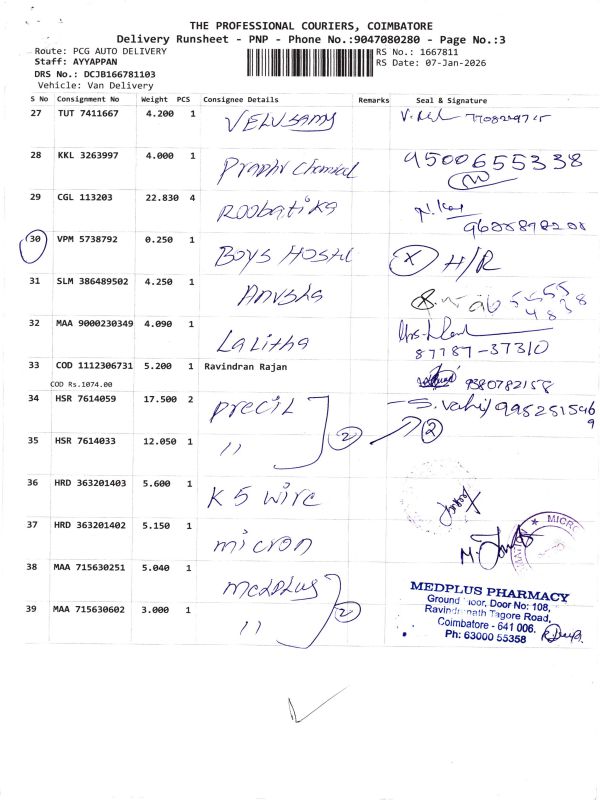 THE PROFESSIONAL COURIERS, COIMBATORE
Delivery Runsheet - PNP - Phone No.:9047080280 - Page No.:3
Route: PCG AUTO DELIVERY
RS No.: 1667811
Staff: AYYAPPAN
RS Date: 07-Jan-2026
DRS No.: DCJB166781103
Vehicle: Van Delivery
S No Consignment No Weight PCS Consignee Details Remarks Seal & Signature
27 TUT 7411667 4.200 1 VELUSAMY
28 KKL 3263997 4.000 1 Chemical 9500655338
29 CGL 113203 22.830 4 Roobatika
30 VPM 5738792 0.250 1 Boys Hostel X H/R
31 SLM 386489502 4.250 1 Anusha
32 MAA 9000230349 4.090 1 Lalitha
87787-37310
33 COD 1112306731 5.200 1 Ravindran Rajan 9380782158
COD Rs.1074.00
34 HSR 7614059 17.500 2 Precil
35 HSR 7614033 12.050 1 " 2 2
36 HRD 363201403 5.600 1 K 5 wire
37 HRD 363201402 5.150 1 micron
38 MAA 715630251 5.040 1 medplus
39 MAA 715630602 3.000 1 " 2
MICR
MEDPLUS PHARMACY
Ground Floor, Door No: 108,
Ravindranath Tagore Road,
Coimbatore - 641 006.
Ph: 63000 55358